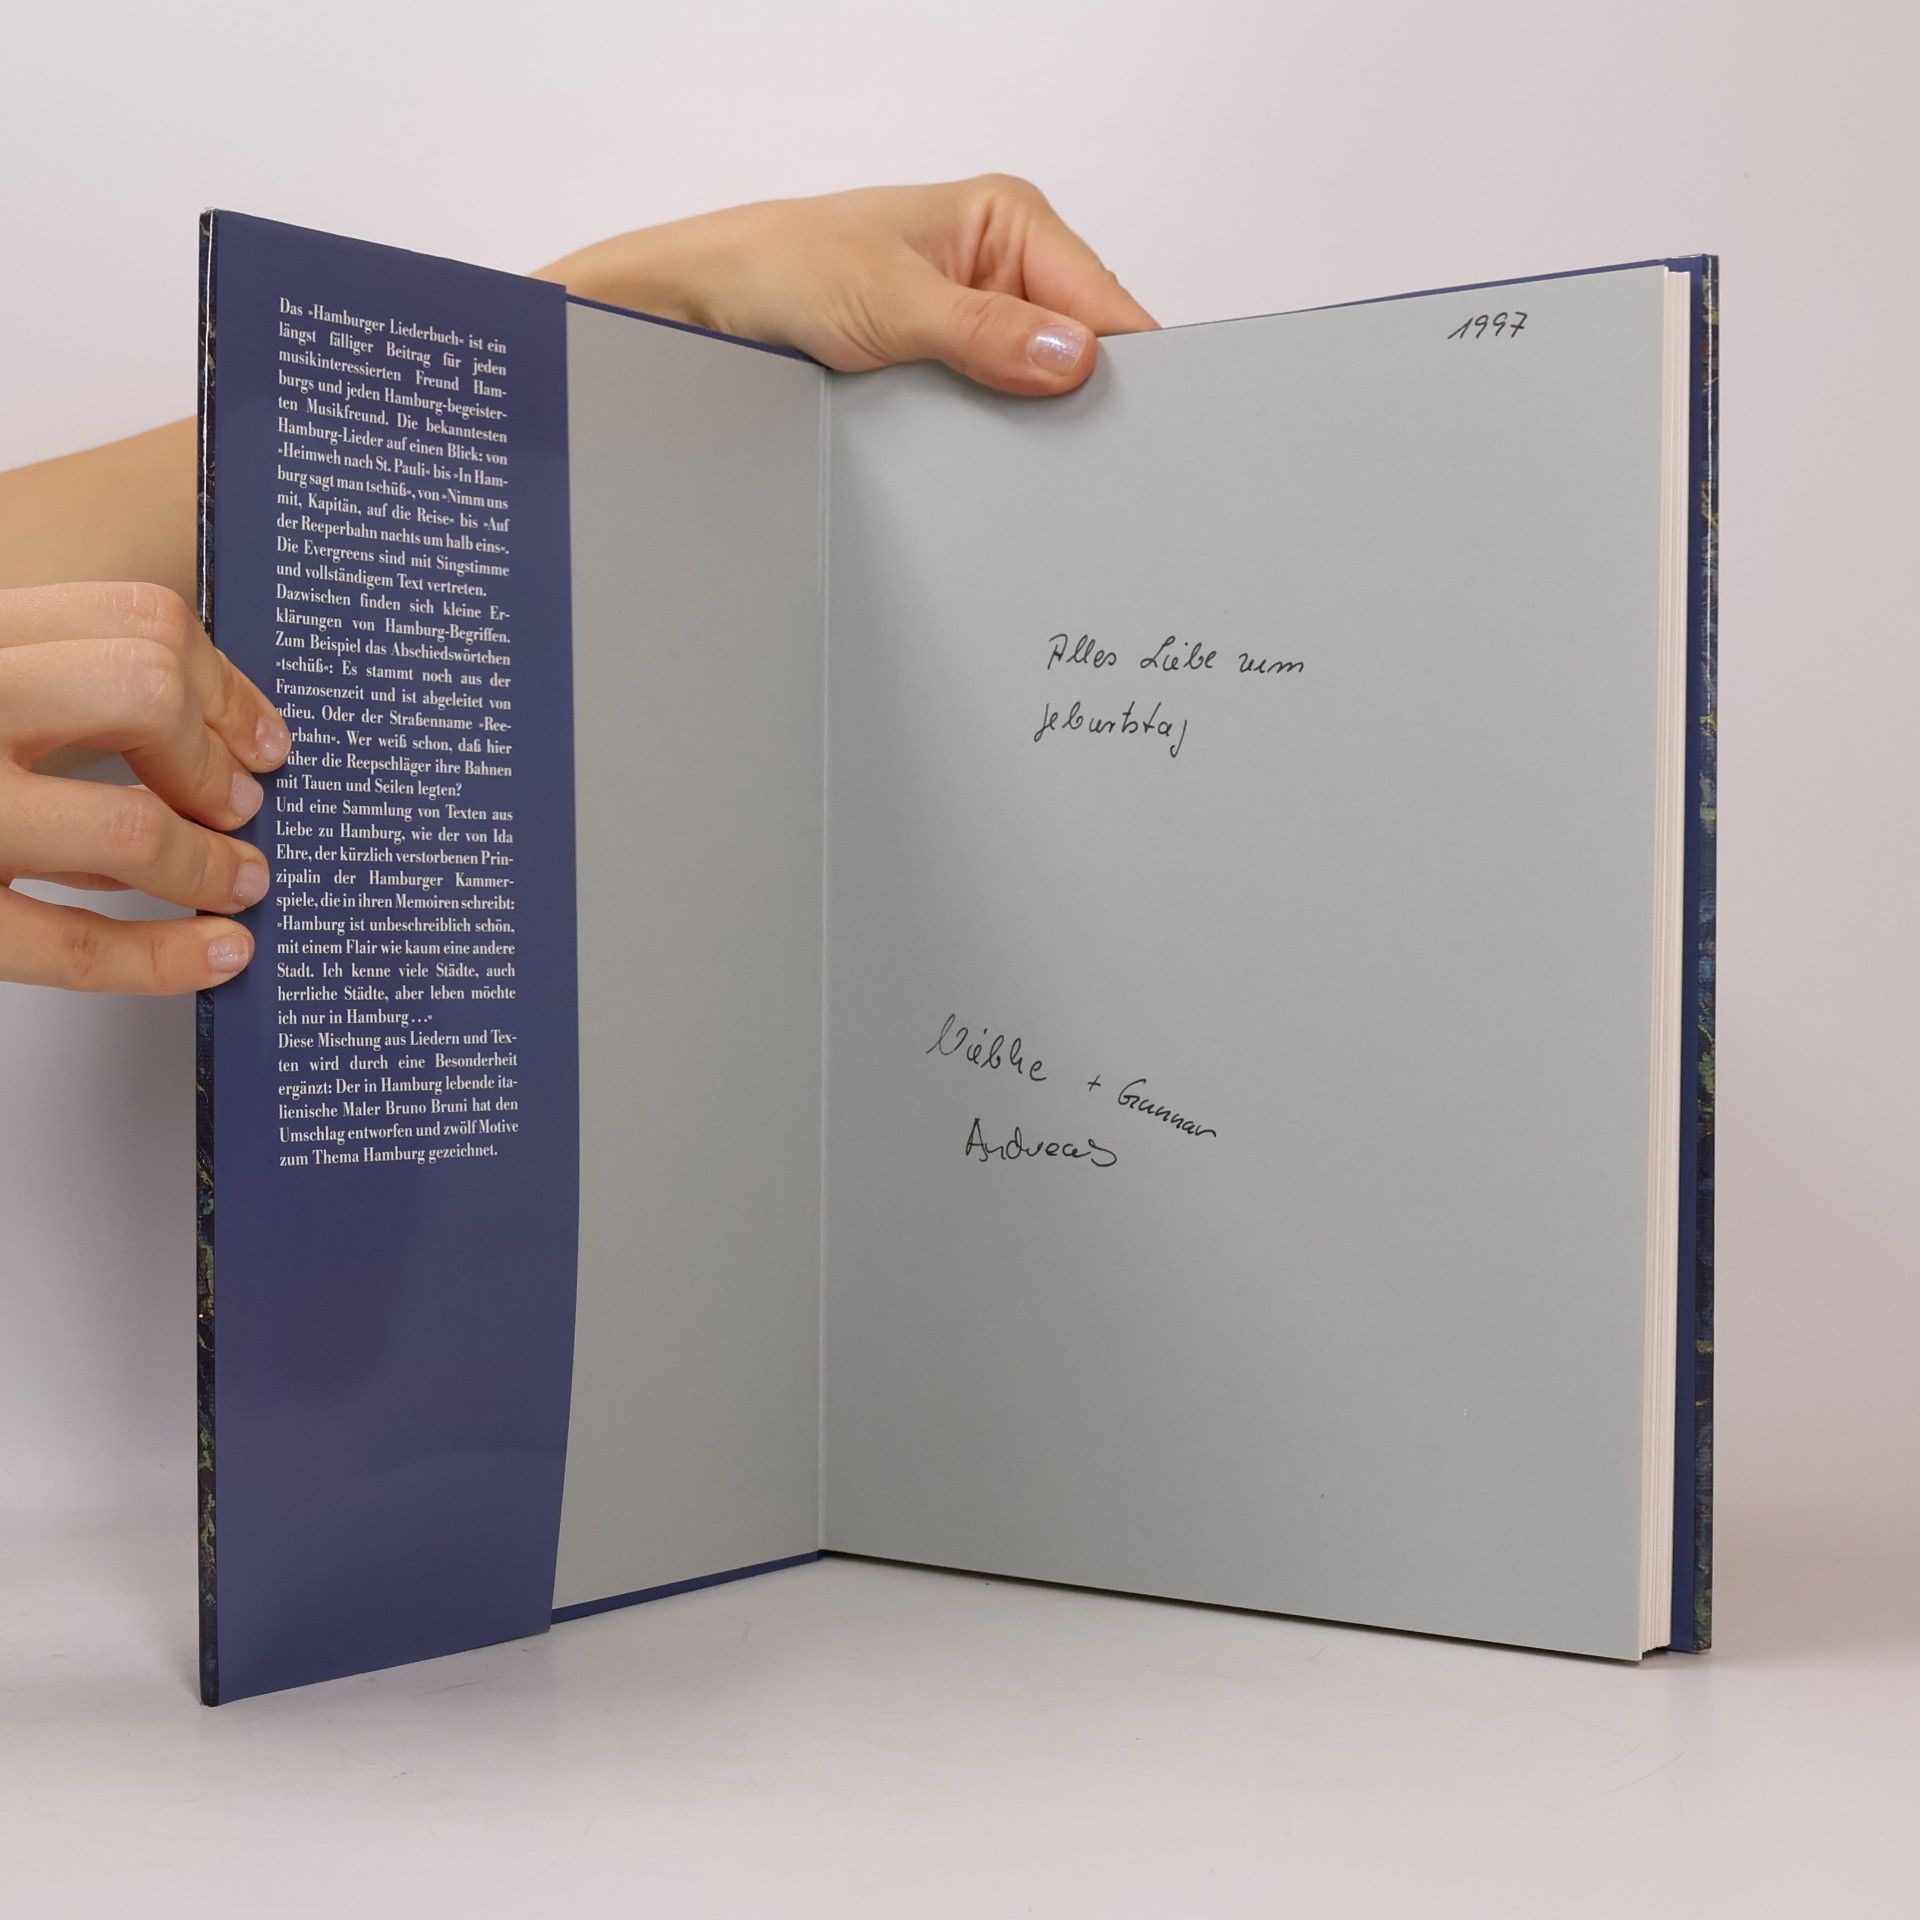 Das »Hamburger Liederbuch« ist ein
längst fälliger Beitrag für jeden
musikinteressierten Freund Ham-
burgs und jeden Hamburg-begeister-
ten Musikfreund. Die bekanntesten
Hamburg-Lieder auf einen Blick: von
»Heimweh nach St. Pauli« bis »In Ham-
burg sagt man tschüß«, von »Nimm uns
mit, Kapitän, auf die Reise« bis »Auf
der Reeperbahn nachts um halb eins«.
Die Evergreens sind mit Singstimme
und vollständigem Text vertreten.
Dazwischen finden sich kleine Er-
klärungen von Hamburg-Begriffen.
Zum Beispiel das Abschiedswörtchen
»tschüß«: Es stammt noch aus der
Franzosenzeit und ist abgeleitet von
adieu. Oder der Straßenname »Ree-
rbahn«. Wer weiß schon, daß hier
üher die Reepschläger ihre Bahnen
mit Tauen und Seilen legten?
Und eine Sammlung von Texten aus
Liebe zu Hamburg, wie der von Ida
Ehre, der kürzlich verstorbenen Prin-
zipalin der Hamburger Kammer-
spiele, die in ihren Memoiren schreibt:
»Hamburg ist unbeschreiblich schön,
mit einem Flair wie kaum eine andere
Stadt. Ich kenne viele Städte, auch
herrliche Städte, aber leben möchte
ich nur in Hamburg...«
Diese Mischung aus Liedern und Tex-
ten wird durch eine Besonderheit
ergänzt: Der in Hamburg lebende ita-
lienische Maler Bruno Bruni hat den
Umschlag entworfen und zwölf Motive
zum Thema Hamburg gezeichnet.
1997
Alles Liebe zum
Geburtstag
Wiebke + Gunnar
Andreas